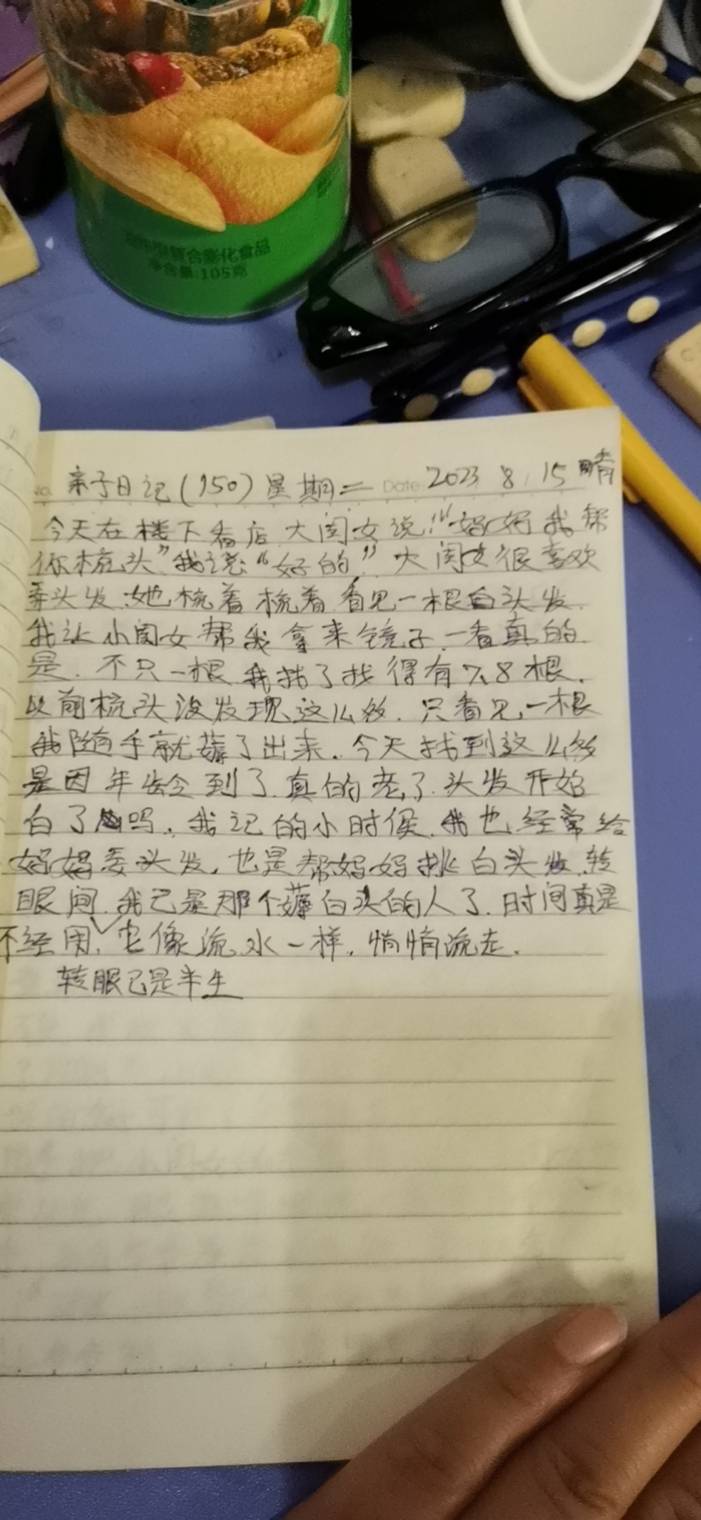 复合膨化食品
净含量:105克
亲子日记(150)星期二 Date 2023 8 15 晴
今天在楼下看店 大闺女说:"妈妈我帮
你梳头"我说"好的"大闺女很喜欢
弄头发.她梳着梳着看见一根白头发.
我让小闺女帮我拿来镜子一看真的
是.不只一根我找了找得有7.8根.
以前梳头没发现这么多.只看见一根
我随手就薅了出来.今天找到这么多
是因年龄到了.真的老了.头发开始
白了吗.我记的小时候.我也经常给
妈妈弄头发,也是帮妈妈挑白头发.转
眼间.我已是那个薅白头的人了.时间真是
不经用、它像流水一样.悄悄流走.
转眼已是半生